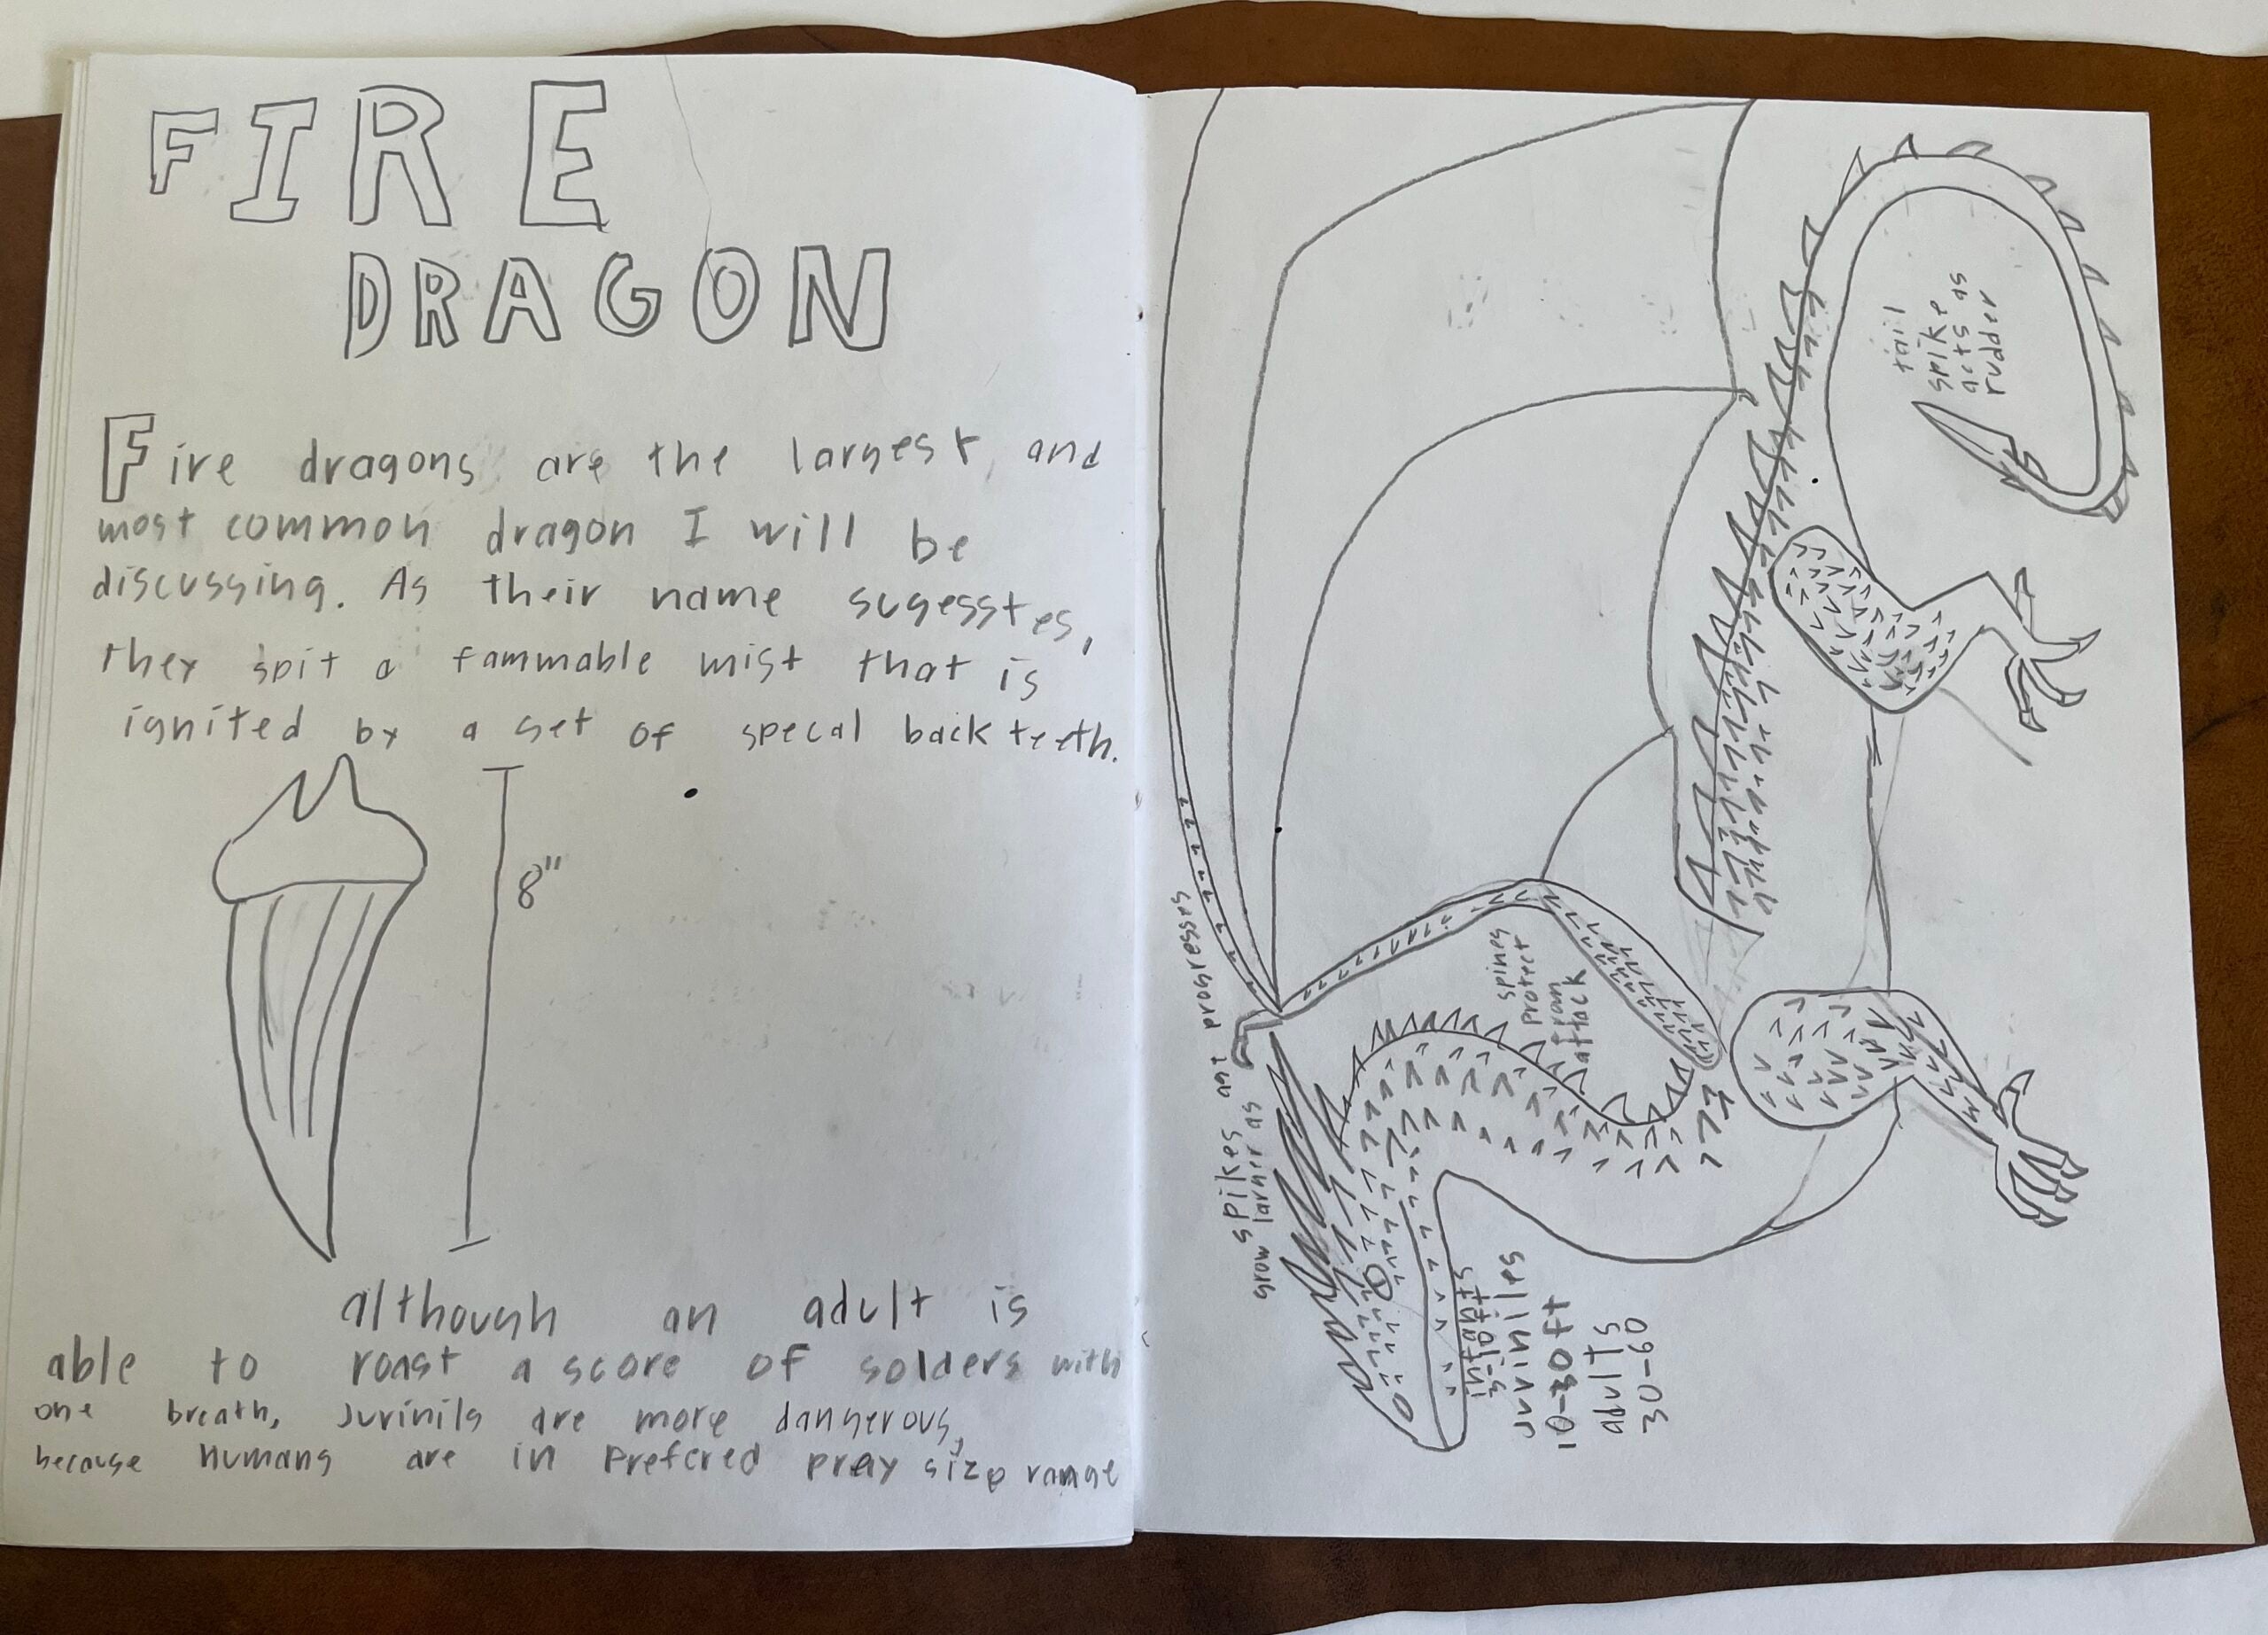 FIRE
DRAGON
Fire dragons are the largest, and
most common dragon I will be
discussing. As their name sugesstes,
they spit a fammable mist that is
ignited by a set of specal back teeth.
8"
although an adult is
able to roast a score of solders with
one breath, Juvinils are more dangerous,
because humans are in Prefered pray size range
tail
spike
acts as
rudder
spines
protect
from
attack
spikes
grow larger as age progresses
infants
5-10ft
Juviniles
10-30ft
adults
30-60